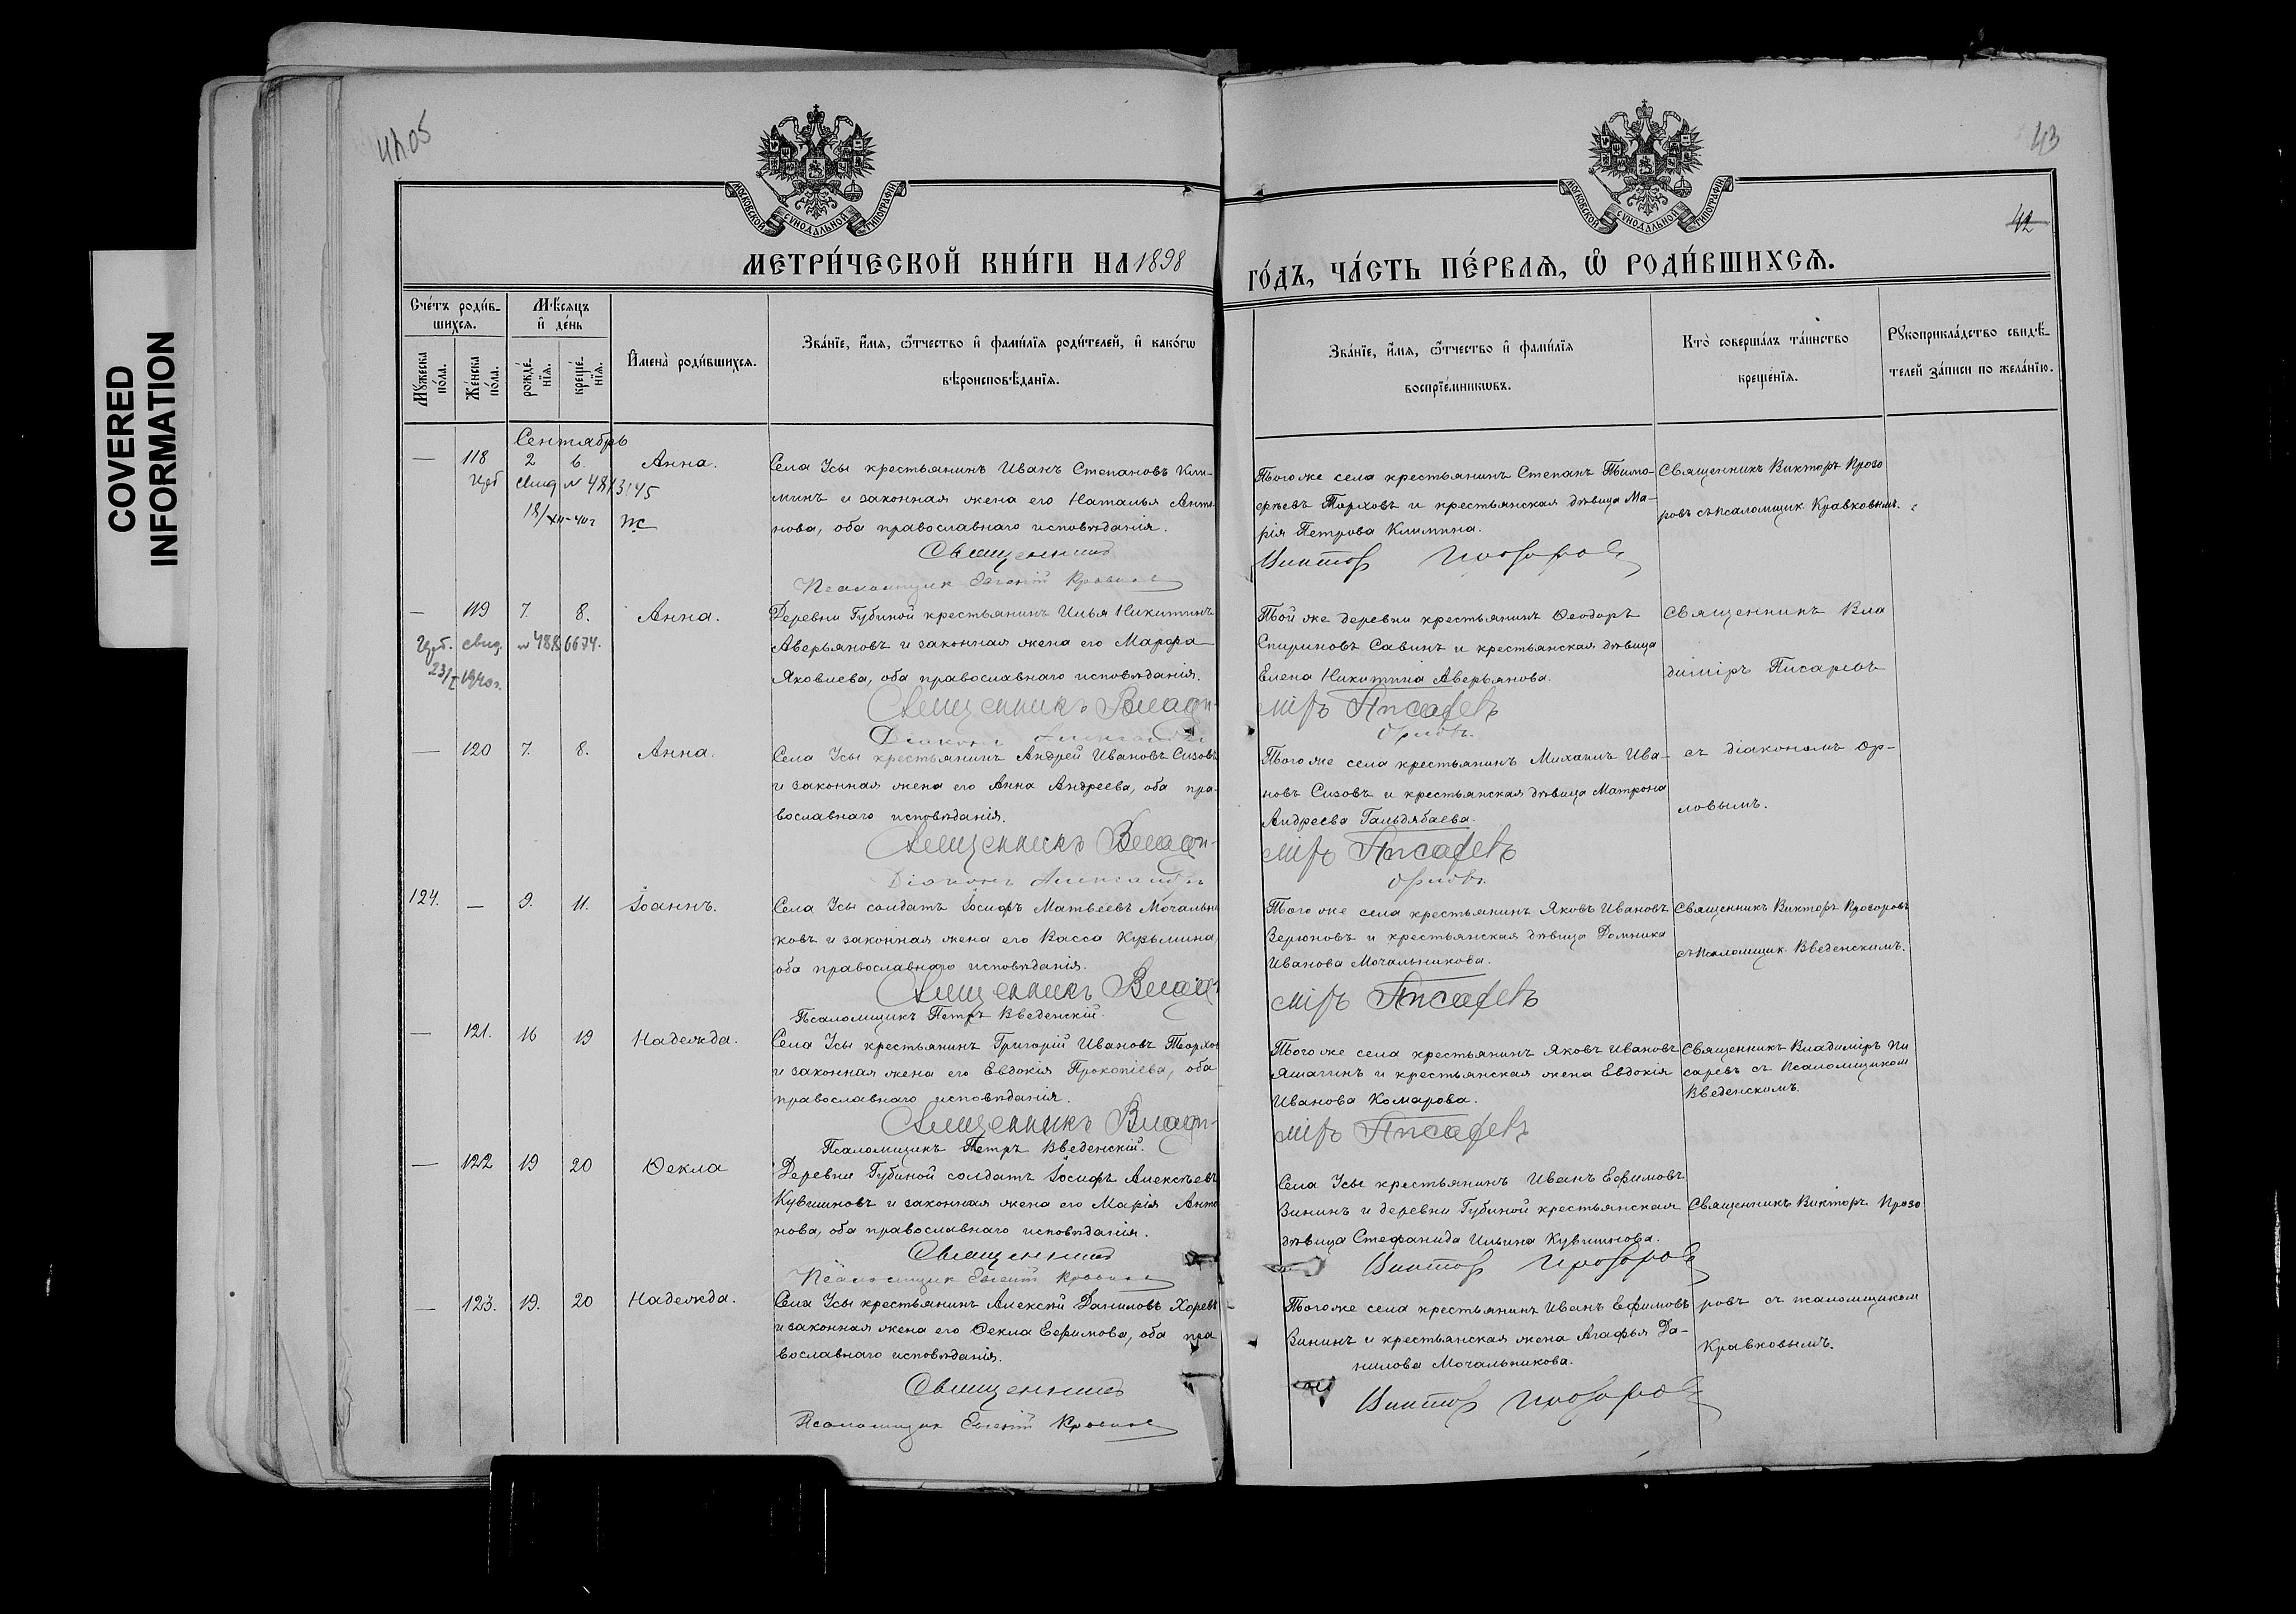 COVERED
INFORMATION
43
42
МОСКОВСКОЙ СѴНОДАЛЬНОЙ ТИПОГРАФІИ
МОСКОВСКОЙ СѴНОДАЛЬНОЙ ТИПОГРАФІИ
МЕТРИ́ЧЕСКОЙ КНИ́ГИ НА 1898
ГО́ДЪ, ЧА́СТЬ ПЕ́РВАѦ, Ѽ РОДИ́ВШИХСѦ.
Сче́тъ роди́в-
шихсѧ.
Мꙋ́жеска по́ла.
Же́нска по́ла.
Мѣ́сѧцъ
и҆ де́нь
рожде́-
нїѧ.
креще́-
нїѧ.
И҆мена̀ роди́вшихсѧ.
Зва́нїе, и҆́мѧ, ѻ҆́тчество и҆ фами́лїѧ роди́телей, и҆ како́гѡ
вѣроисповѣ́данїѧ.
Зва́нїе, и҆́мѧ, ѻ҆́тчество и҆ фами́лїѧ
воспрїе́мникѡвъ.
Кто̀ соверша́лъ та́инство
креще́нїѧ.
Рꙋкоприкла́дство свидѣ́-
телей за́писи по жела́нїю.
Сентябрь
— 118 2 6. Анна.
Села Усы крестьянинъ Иванъ Степановъ Кли-
минъ и законная жена его Наталья Анто-
нова, оба православнаго исповѣданія.
Священникъ
Псаломщик Евгеній Кравков
Того же села крестьянинъ Степанъ Тимо-
феевъ Торховъ и крестьянская дѣвица Ма-
рія Петрова Климина.
Виктор Прозоров
Священникъ Викторъ Прозо
ровъ съ псаломщик. Кравковымъ.
— 119 7. 8. Анна.
свид. N 488 6674.
23/I 1940г.
Деревни Губиной крестьянинъ Илья Никитинъ
Аверьяновъ и законная жена его Марфа
Яковлева, оба православнаго исповѣданія.
Священникъ Влади-
Діаконъ Александръ
Той же деревни крестьянинъ Ѳеодоръ
Спириновъ Савинъ и крестьянская дѣвица
Елена Никитина Аверьянова.
міръ Писаревъ
Орловъ.
Священникъ Вла
диміръ Писаревъ
— 120 7. 8. Анна.
Села Усы крестьянинъ Андрей Ивановъ Сизовъ
и законная жена его Анна Андреева, оба пра-
вославнаго исповѣданія.
Священникъ Влади-
Діаконъ Александръ
Того же села крестьянинъ Михаилъ Ива-
новъ Сизовъ и крестьянская дѣвица Матрона
Андреева Гальдябаева.
міръ Писаревъ
Орловъ.
съ діакономъ Ор-
ловымъ.
124. — 9. 11. Іоаннъ.
Села Усы солдатъ Іосифъ Матвеевъ Мочальни
ковъ и законная жена его Васса Кузьмина,
оба православнаго исповѣданія.
Священникъ Влади
Псаломщикъ Петръ Введенскій.
Того же села крестьянинъ Яковъ Ивановъ
Верюновъ и крестьянская дѣвица Домника
Иванова Мочальникова.
міръ Писаревъ
Священникъ Викторъ Прозоровъ
съ псаломщик. Введенскимъ.
— 121. 16 19 Надежда.
Села Усы крестьянинъ Григорій Ивановъ Торхов
и законная жена его Евдокія Прокопіева, оба
православнаго исповѣданія.
Священникъ Влади-
Псаломщикъ Петръ Введенскій.
Того же села крестьянинъ Яковъ Ивановъ
Яшагинъ и крестьянская жена Евдокія
Иванова Комарова.
міръ Писаревъ
Священникъ Владиміръ Пи
саревъ съ псаломщиком
Введенскимъ.
— 122 19 20 Ѳекла
Деревни Губиной солдатъ Іосифъ Алексѣевъ
Кувшиновъ и законная жена его Марія Анто
нова, оба православнаго исповѣданія.
Священникъ
Псаломщик Евгеній Кравков
Села Усы крестьянинъ Иванъ Ефимовъ
Зининъ и деревни Губиной крестьянская
дѣвица Стефанида Ильина Кувшинова.
Виктор Прозоров
Священникъ Викторъ Прозо
— 123. 19. 20 Надежда.
Села Усы крестьянинъ Алексѣй Даниловъ Хоревъ
и законная жена его Ѳекла Ефимова, оба пра
вославнаго исповѣданія.
Священникъ
Псаломщик Евгеній Кравков
Того же села крестьянинъ Иванъ Ефимовъ
Зининъ и крестьянская жена Агафья Да-
нилова Мочальникова.
Виктор Прозоров
ровъ съ псаломщиком
Кравковымъ.